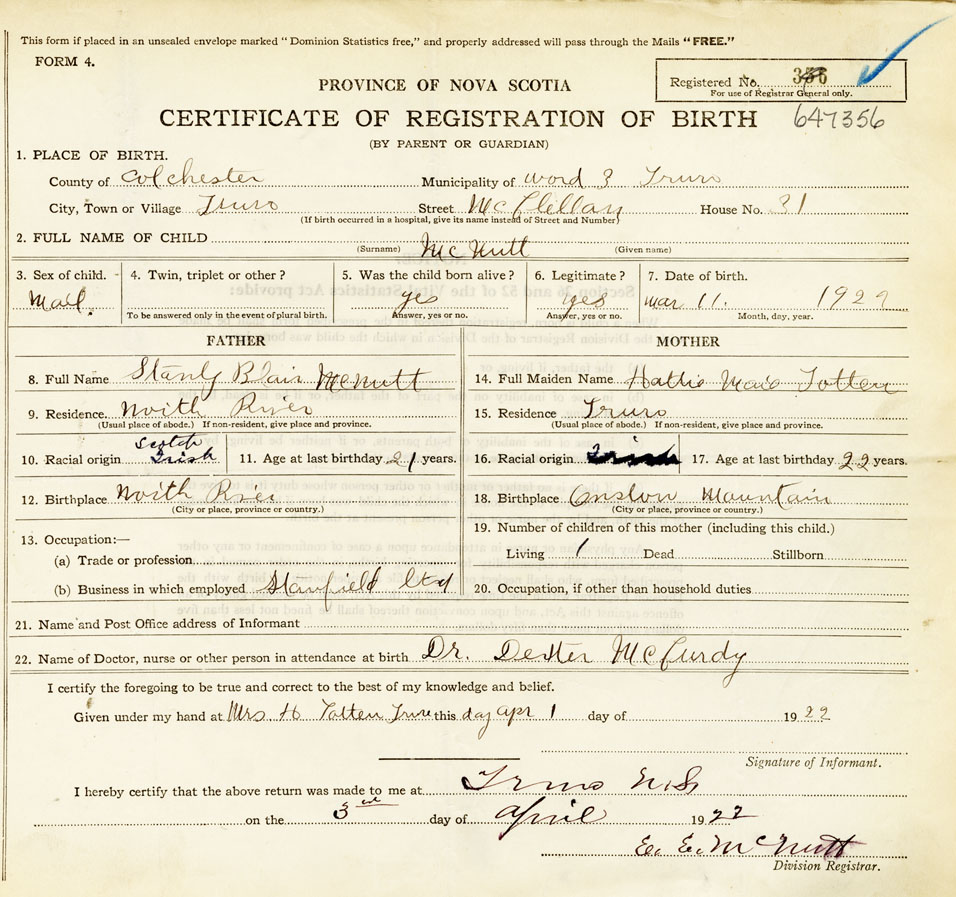 This form if placed in an unsealed envelope marked "Dominion Statistics free," and properly addressed will pass through the Mails "FREE."
FORM 4.
PROVINCE OF NOVA SCOTIA
Registered No. 356
For use of Registrar General only.
CERTIFICATE OF REGISTRATION OF BIRTH 647356
(BY PARENT OR GUARDIAN)
1. PLACE OF BIRTH.
County of Colchester Municipality of Word 3 Truro
City, Town or Village Truro Street McClellan House No. 31
(If birth occurred in a hospital, give its name instead of Street and Number)
2. FULL NAME OF CHILD McNutt
(Surname) (Given name)
3. Sex of child. 4. Twin, triplet or other? 5. Was the child born alive? 6. Legitimate? 7. Date of birth.
Mail. yes yes Mar 11. 1922
To be answered only in the event of plural birth. Answer, yes or no. Answer, yes or no. Month, day, year.
FATHER MOTHER
8. Full Name Stanly Blair McNutt 14. Full Maiden Name Hattie Mae Totten
9. Residence. North River 15. Residence Truro
(Usual place of abode.) If non-resident, give place and province. (Usual place of abode.) If non-resident, give place and province.
Scotch
10. Racial origin Irish 11. Age at last birthday 21 years. 16. Racial origin Irish 17. Age at last birthday 22 years.
12. Birthplace North River 18. Birthplace Onslow Mountain
(City or place, province or country.) (City or place, province or country.)
19. Number of children of this mother (including this child.)
13. Occupation:—
Living 1 Dead Stillborn
(a) Trade or profession.
(b) Business in which employed Stanfield Ltd 20. Occupation, if other than household duties
21. Name and Post Office address of Informant
22. Name of Doctor, nurse or other person in attendance at birth Dr. Dexter McCurdy
I certify the foregoing to be true and correct to the best of my knowledge and belief.
Given under my hand at Mrs H Totten Truro this day Apr 1 day of 1922
Signature of Informant.
I hereby certify that the above return was made to me at Truro N.S.
on the 3rd day of April 1922
E. E. McNutt
Division Registrar.